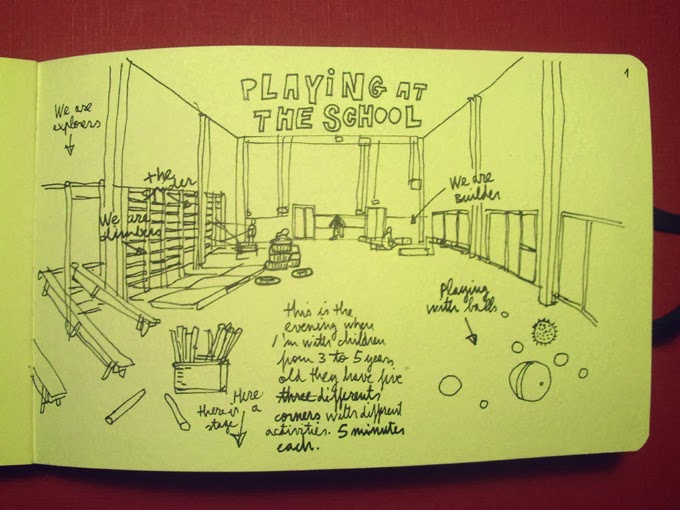 1
PLAYING AT
THE SCHOOL
We are
explorers
the
spider
We are
climbers
We are
Builder
Playing
with balls
this is the
evening when
I'm with children
from 3 to 5 years
old they have five
three differents
corners with different
activities. 5 minutes
each.
Here
there is a
stage